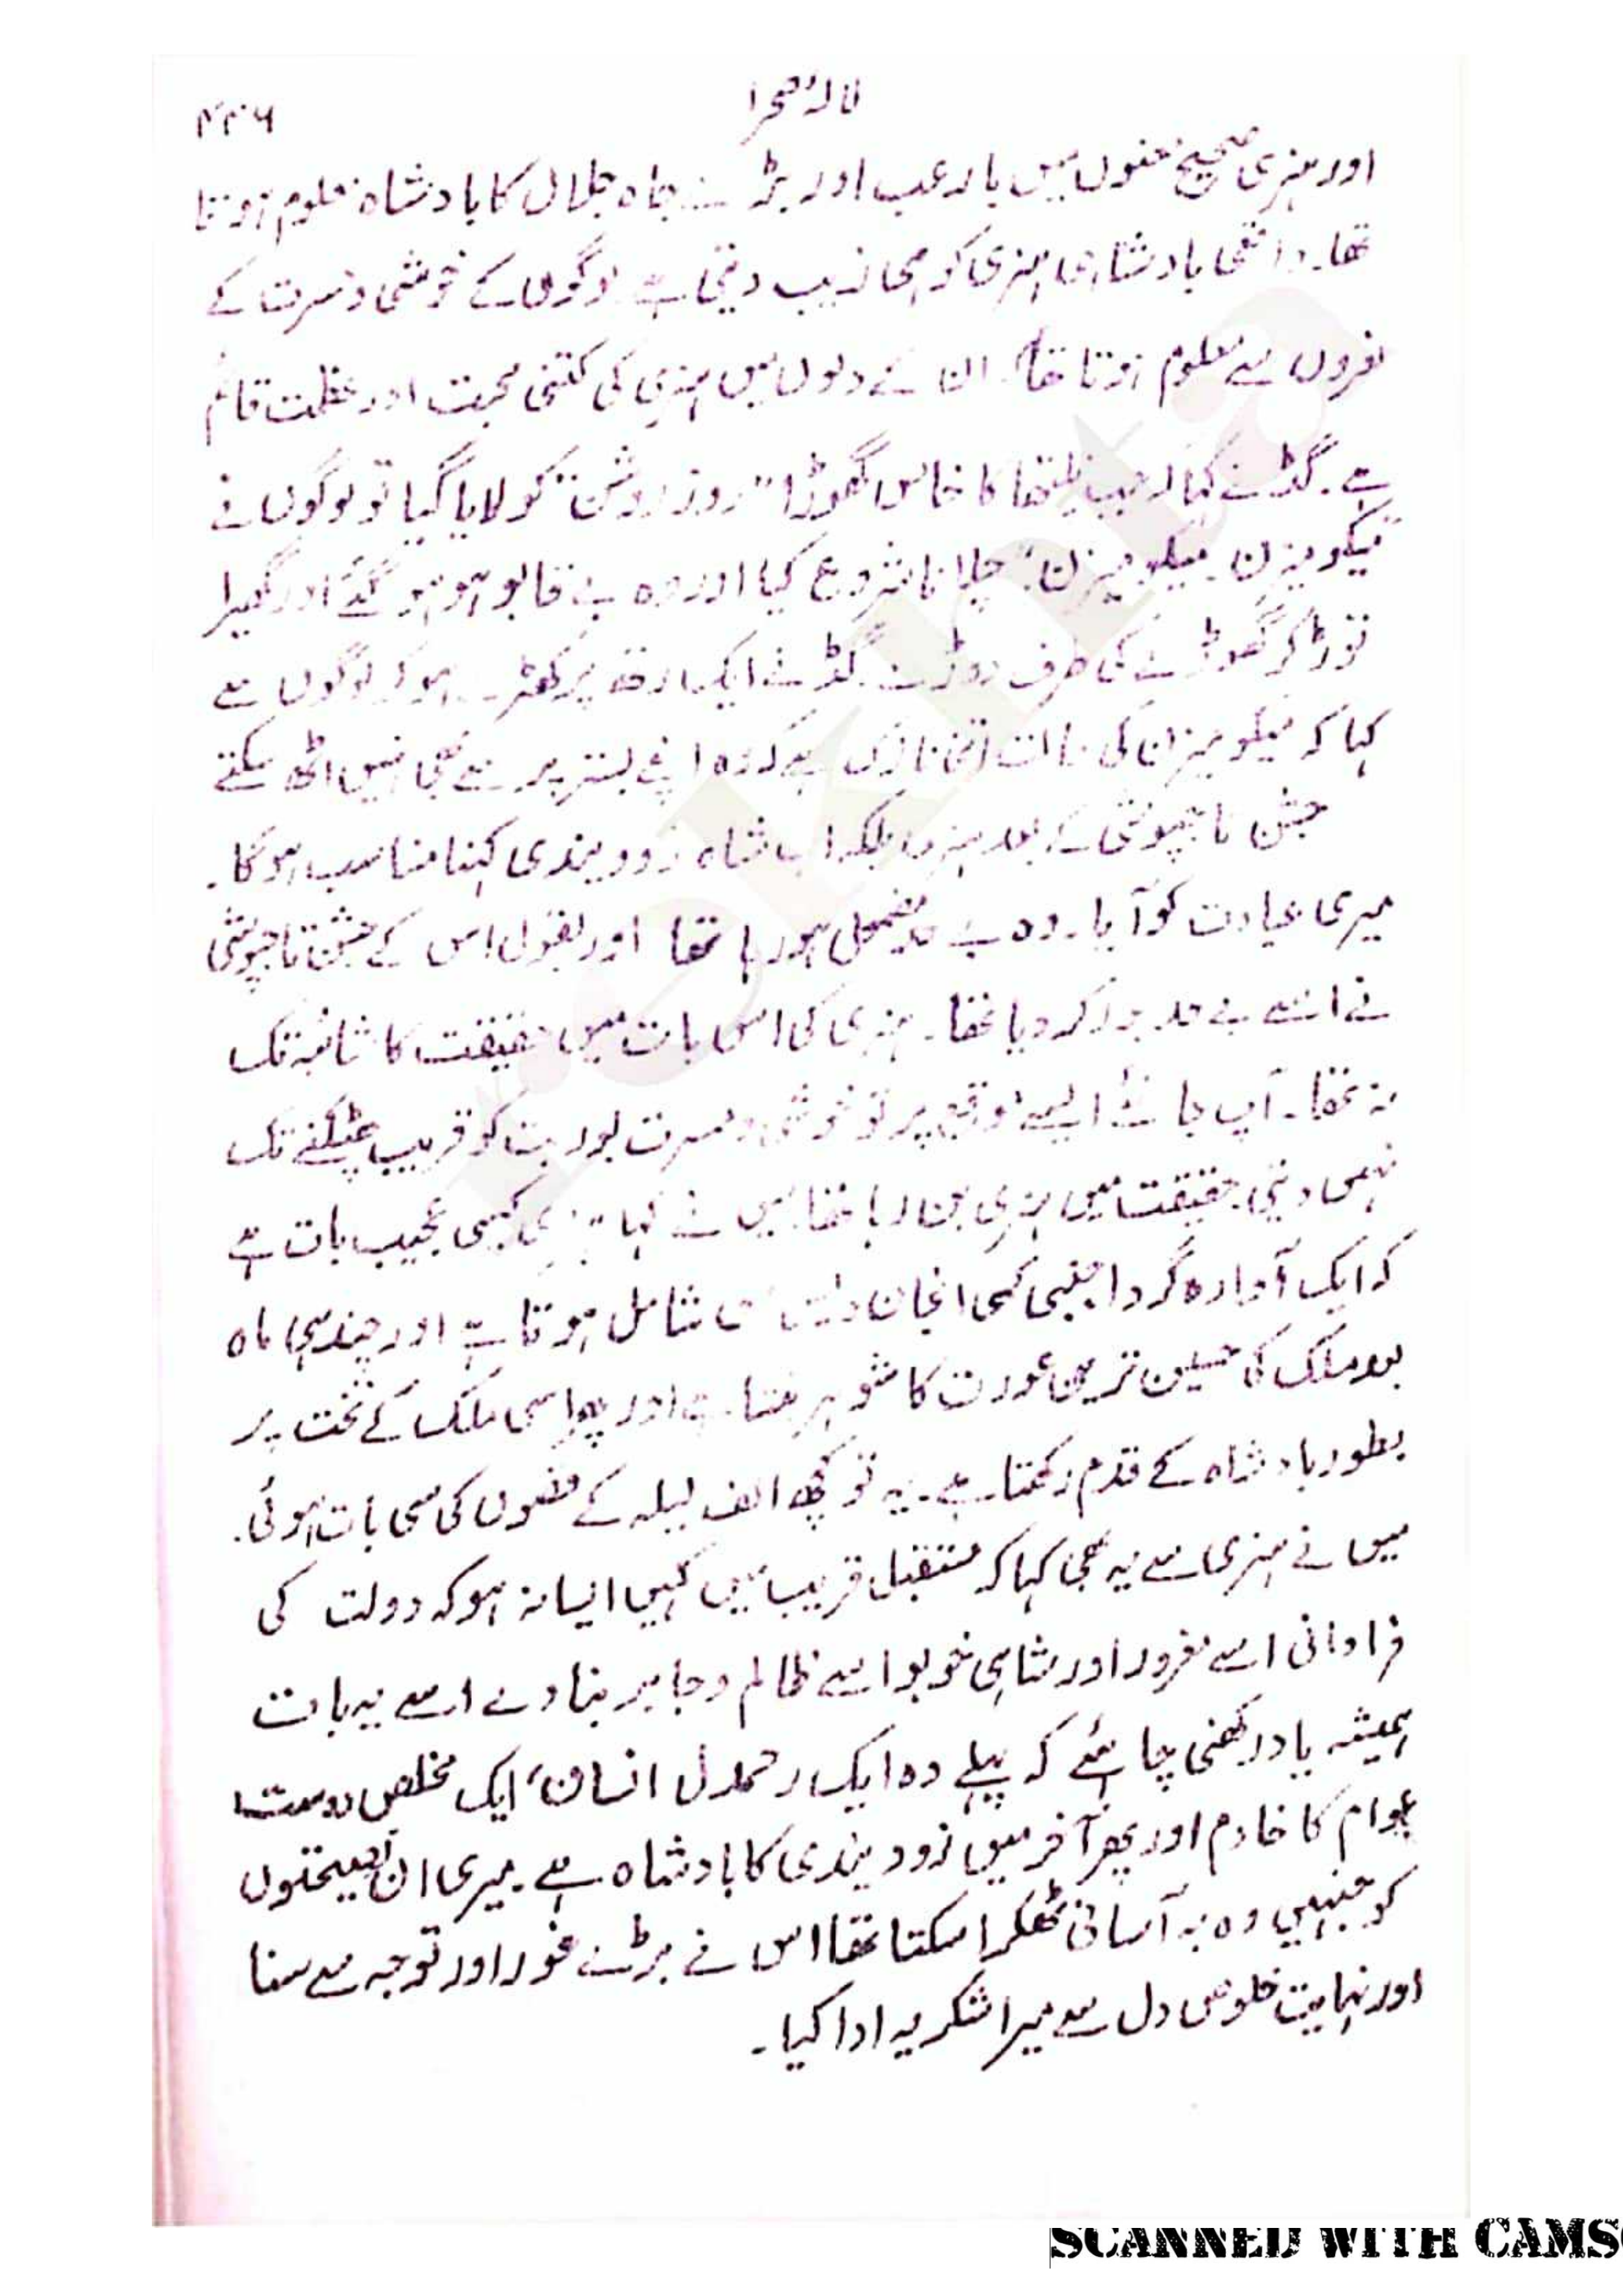 لالۂ صحرا
۴۴۶
اور ہنری صحیح معنوں میں بارعب اور بڑے جاہ جلال کا بادشاہ معلوم ہوتا
تھا۔ واقعی بادشاہی ہنری کو ہی زیب دیتی ہے لوگوں کے خوشی و مسرت کے
نعروں سے معلوم ہوتا تھا۔ ان کے دلوں میں ہنری کی کتنی محبت اور عظمت قائم
ہے۔ گڈ نے کہا کا خاص گھوڑا "روز روشن" کو لایا گیا تو لوگوں نے
چلانا شروع کیا اور وہ بے قابو ہو ہو گئے اور گھیرا
توڑ کر گھوڑے کی طرف دوڑے۔ گڈ نے ایک رتھ پر کھڑے ہو کر لوگوں سے
کہا کہ کی حالت اتنی نازک ہے کہ وہ اپنے بستر پر سے بھی نہیں اٹھ سکتے
جشن تاجپوشی کے بعد ہنری بلکہ اب شاہ زوویندی کہنا مناسب ہو گا۔
میری عیادت کو آیا۔ وہ بے حد مضمحل ہو رہا تھا اور بقول اس کے جشن تاجپوشی
نے اسے بے حد بور کر دیا تھا۔ ہنری کی اس بات میں حقیقت کا شائبہ تک
نہ تھا۔ آپ جانئے ایسے موقع پر تو خوشی و مسرت بوریت کو قریب پھٹکنے تک
نہیں دیتی حقیقت میں ہنری بن رہا تھا میں نے کہا ہنری کیسی عجیب بات ہے
کہ ایک آوارہ گرد اجنبی کسی انجان شامل ہوتا ہے اور چند ہی ماہ
بعد ملک کی حسین ترین عورت کا شوہر بنتا ہے اور پھر اسی ملک کے تخت پر
بطور بادشاہ کے قدم رکھتا ہے۔ یہ تو کچھ الف لیلہ کے قصوں کی سی بات ہوئی۔
میں نے ہنری سے یہ بھی کہا کہ مستقبل قریب میں کہیں ایسا نہ ہو کہ دولت کی
فراوانی اسے مغرور اور شاہی خو بو اسے ظالم و جابر بنا دے اسے یہ بات
ہمیشہ یاد رکھنی چاہئے کہ پہلے وہ ایک رحمدل انسان، ایک مخلص دوست
عوام کا خادم اور پھر آخر میں زوویندی کا بادشاہ ہے۔ میری ان نصیحتوں
کو جنہیں وہ بہ آسانی ٹھکرا سکتا تھا اس نے بڑے غور اور توجہ سے سنا
اور نہایت خلوص دل سے میرا شکریہ ادا کیا۔
SCANNED WITH CAMS